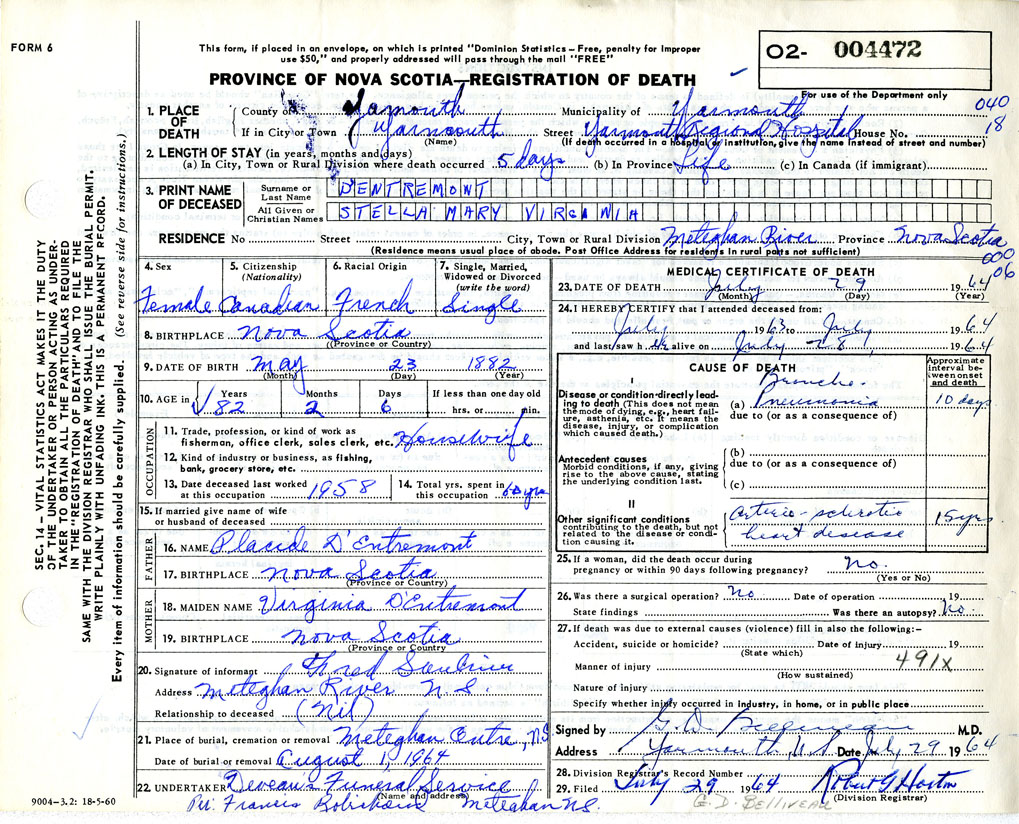 FORM 6
This form, if placed in an envelope, on which is printed "Dominion Statistics – Free, penalty for improper
use $50," and properly addressed will pass through the mail "FREE"
PROVINCE OF NOVA SCOTIA—REGISTRATION OF DEATH
O2- 004472
For use of the Department only
040
18
1. PLACE OF DEATH
County of Yarmouth Municipality of Yarmouth
If in City or Town Yarmouth Street Yarmouth Regional Hospital House No.
(Name) (If death occurred in a hospital or institution, give the name instead of street and number)
2. LENGTH OF STAY (in years, months and days)
(a) In City, Town or Rural Division where death occurred 5 days (b) In Province Life (c) In Canada (if immigrant)
3. PRINT NAME OF DECEASED
Surname or Last Name D'ENTREMONT
All Given or Christian Names STELLA MARY VIRGINIA
RESIDENCE No Street City, Town or Rural Division Meteghan River Province Nova Scotia
(Residence means usual place of abode. Post Office Address for residents in rural parts not sufficient)
000
06
4. Sex Female
5. Citizenship (Nationality) Canadian
6. Racial Origin French
7. Single, Married, Widowed or Divorced (write the word) Single
8. BIRTHPLACE Nova Scotia
(Province or Country)
9. DATE OF BIRTH May 23 1882
(Month) (Day) (Year)
10. AGE in Years Months Days If less than one day old
82 2 6 hrs. or min.
OCCUPATION
11. Trade, profession, or kind of work as
fisherman, office clerk, sales clerk, etc. Housewife
12. Kind of industry or business, as fishing,
bank, grocery store, etc.
13. Date deceased last worked at this occupation 1958
14. Total yrs. spent in this occupation 60 yrs
15. If married give name of wife
or husband of deceased
FATHER
16. NAME Placide D'Entremont
17. BIRTHPLACE Nova Scotia
(Province or Country)
MOTHER
18. MAIDEN NAME Virginia D'Entremont
19. BIRTHPLACE Nova Scotia
(Province or Country)
20. Signature of informant Fred Saulnier
Address Meteghan River N.S.
Relationship to deceased (Nil)
21. Place of burial, cremation or removal Meteghan Centre, N.S
Date of burial or removal August 1, 1964
22. UNDERTAKER Deveau's Funeral Service
(Name and address)
Per: Francis Robichaud Meteghan N.S.
9004-3.2: 18-5-60
MEDICAL CERTIFICATE OF DEATH
23. DATE OF DEATH July 29 1964
(Month) (Day) (Year)
24. I HEREBY CERTIFY that I attended deceased from:
July 1963 to July 1964
and last saw her alive on July 28, 1964
CAUSE OF DEATH
Approximate interval between onset and death
I
Disease or condition directly leading to death (This does not mean
the mode of dying, e.g., heart failure, asthenia, etc. It means the
disease, injury, or complication
which caused death.)
(a) Broncho-Pneumonia 10 days
due to (or as a consequence of)
Antecedent causes
Morbid conditions, if any, giving
rise to the above cause, stating
the underlying condition last.
(b)
due to (or as a consequence of)
(c)
II
Other significant conditions
contributing to the death, but not
related to the disease or condition causing it.
Arterio-sclerotic heart disease 15 yrs
25. If a woman, did the death occur during
pregnancy or within 90 days following pregnancy? No.
(Yes or No)
26. Was there a surgical operation? No Date of operation 19
State findings Was there an autopsy? No.
27. If death was due to external causes (violence) fill in also the following:–
Accident, suicide or homicide? Date of injury 19
(State which)
491x
Manner of injury
(How sustained)
Nature of injury
Specify whether injury occurred in industry, in home, or in public place
Signed by G.D. Belliveau M.D.
Address Yarmouth N.S. Date July 29 1964
28. Division Registrar's Record Number
29. Filed July 29 1964 Robert G Horton
(Division Registrar)
G. D. BELLIVEAU
SEC. 14 – VITAL STATISTICS ACT MAKES IT THE DUTY
OF THE UNDERTAKER OR PERSON ACTING AS UNDERTAKER TO OBTAIN ALL THE PARTICULARS REQUIRED
IN THE "REGISTRATION OF DEATH" AND TO FILE THE
SAME WITH THE DIVISION REGISTRAR WHO SHALL ISSUE THE BURIAL PERMIT.
WRITE PLAINLY WITH UNFADING INK. THIS IS A PERMANENT RECORD.
Every item of information should be carefully supplied. (See reverse side for instructions.)